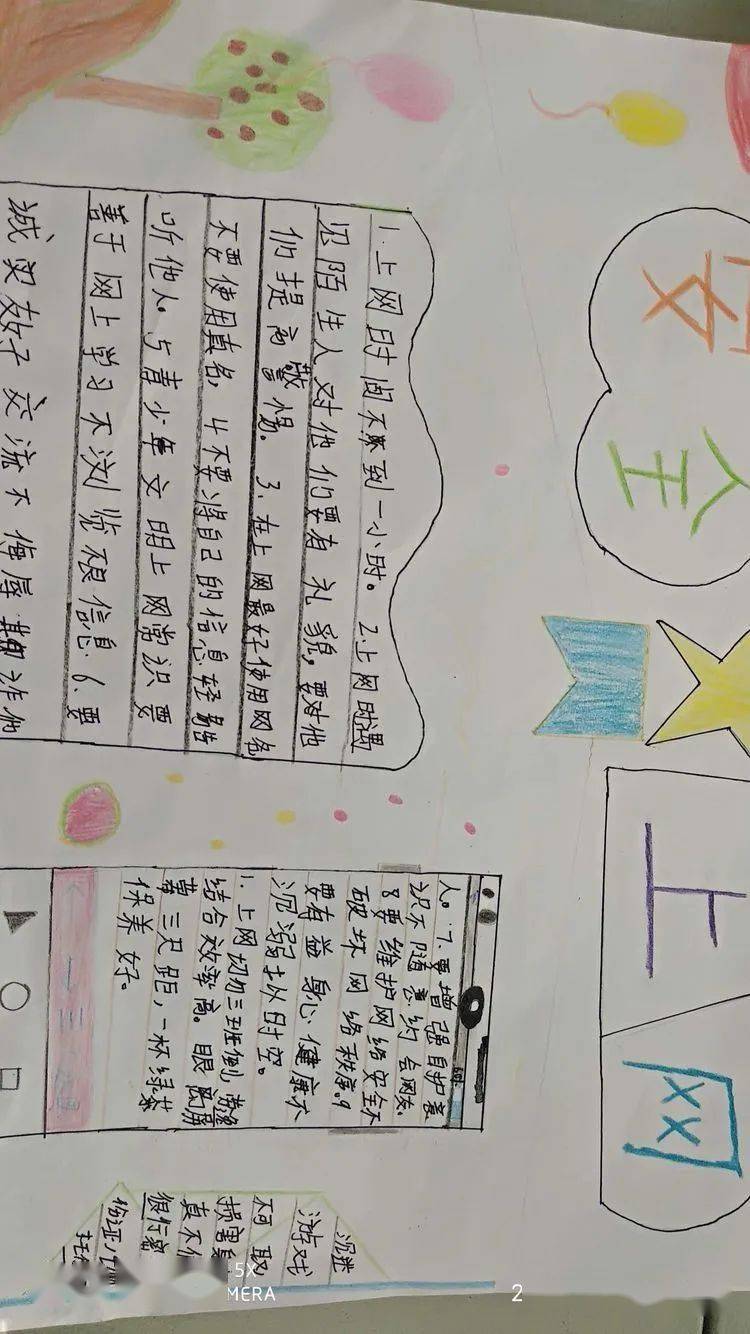 安全
上网
1.上网时间不不到一小时。2.上网时遇
见陌生人对他们要有礼貌，要对他
们提高警惕。3.在上网最好使用网名
不要使用真名，4不要将自己的信息轻易告
听他人。与青少年文明上网常识要
善于网上学习不浏览不良信息.6.要
诚实友好交流不侮辱欺诈他
人。7.要增强自护意
识不随意约会网友.
8要维护网络安全不
破坏网络秩序.9
要有益身心健康不
沉溺拟时空。
1.上网切勿三班倒
结合效率高。眼离屏
幕三尺距，一杯绿茶
保养好。
沉迷
游戏
不可取
损害身
真不
很行
份证
5X
MERA
2